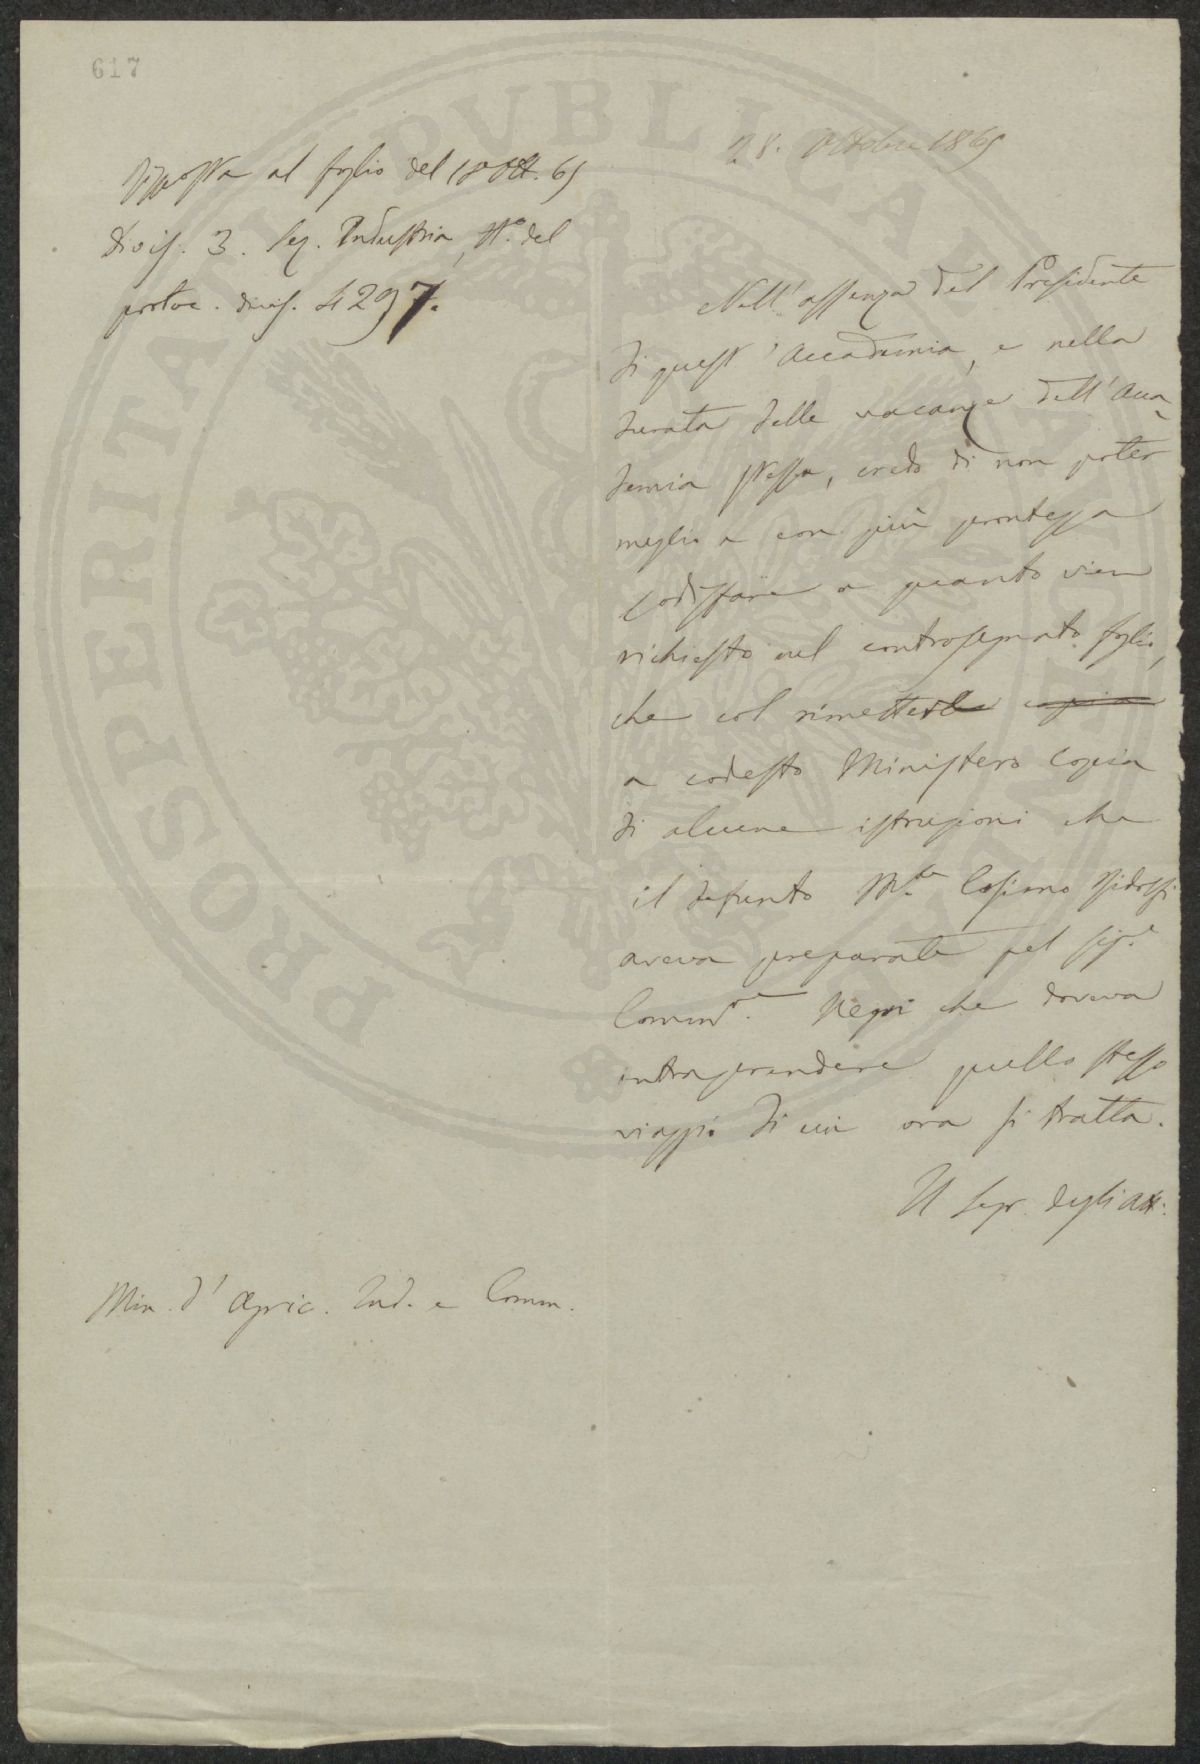 617
28. Ottobre 1865
Risposta al foglio del 18 Ott. 65
Divis. 3. Sez. Industria, N.° del
protoc. divis. 4297.
Nell'assenza del Presidente
di quest'Accademia, e nella
durata delle vacanze dell'Acca
demia stessa, credo di non poter
meglio e con più prontezza
sodisfare a quanto vien
richiesto nel controsegnato foglio,
che col rimettere copia
a codesto Ministero Copia
di alcune istruzioni che
il defunto M.se Cosimo Ridolfi
aveva preparate pel Sig.e
Commd.re Negri che doveva
intraprendere quello stesso
viaggio di cui ora si tratta.
Il Segr. degli Atti.
Min. d'Agric. Ind. e Comm.
PROSPERITATI PVBLICAE AVGENDAE